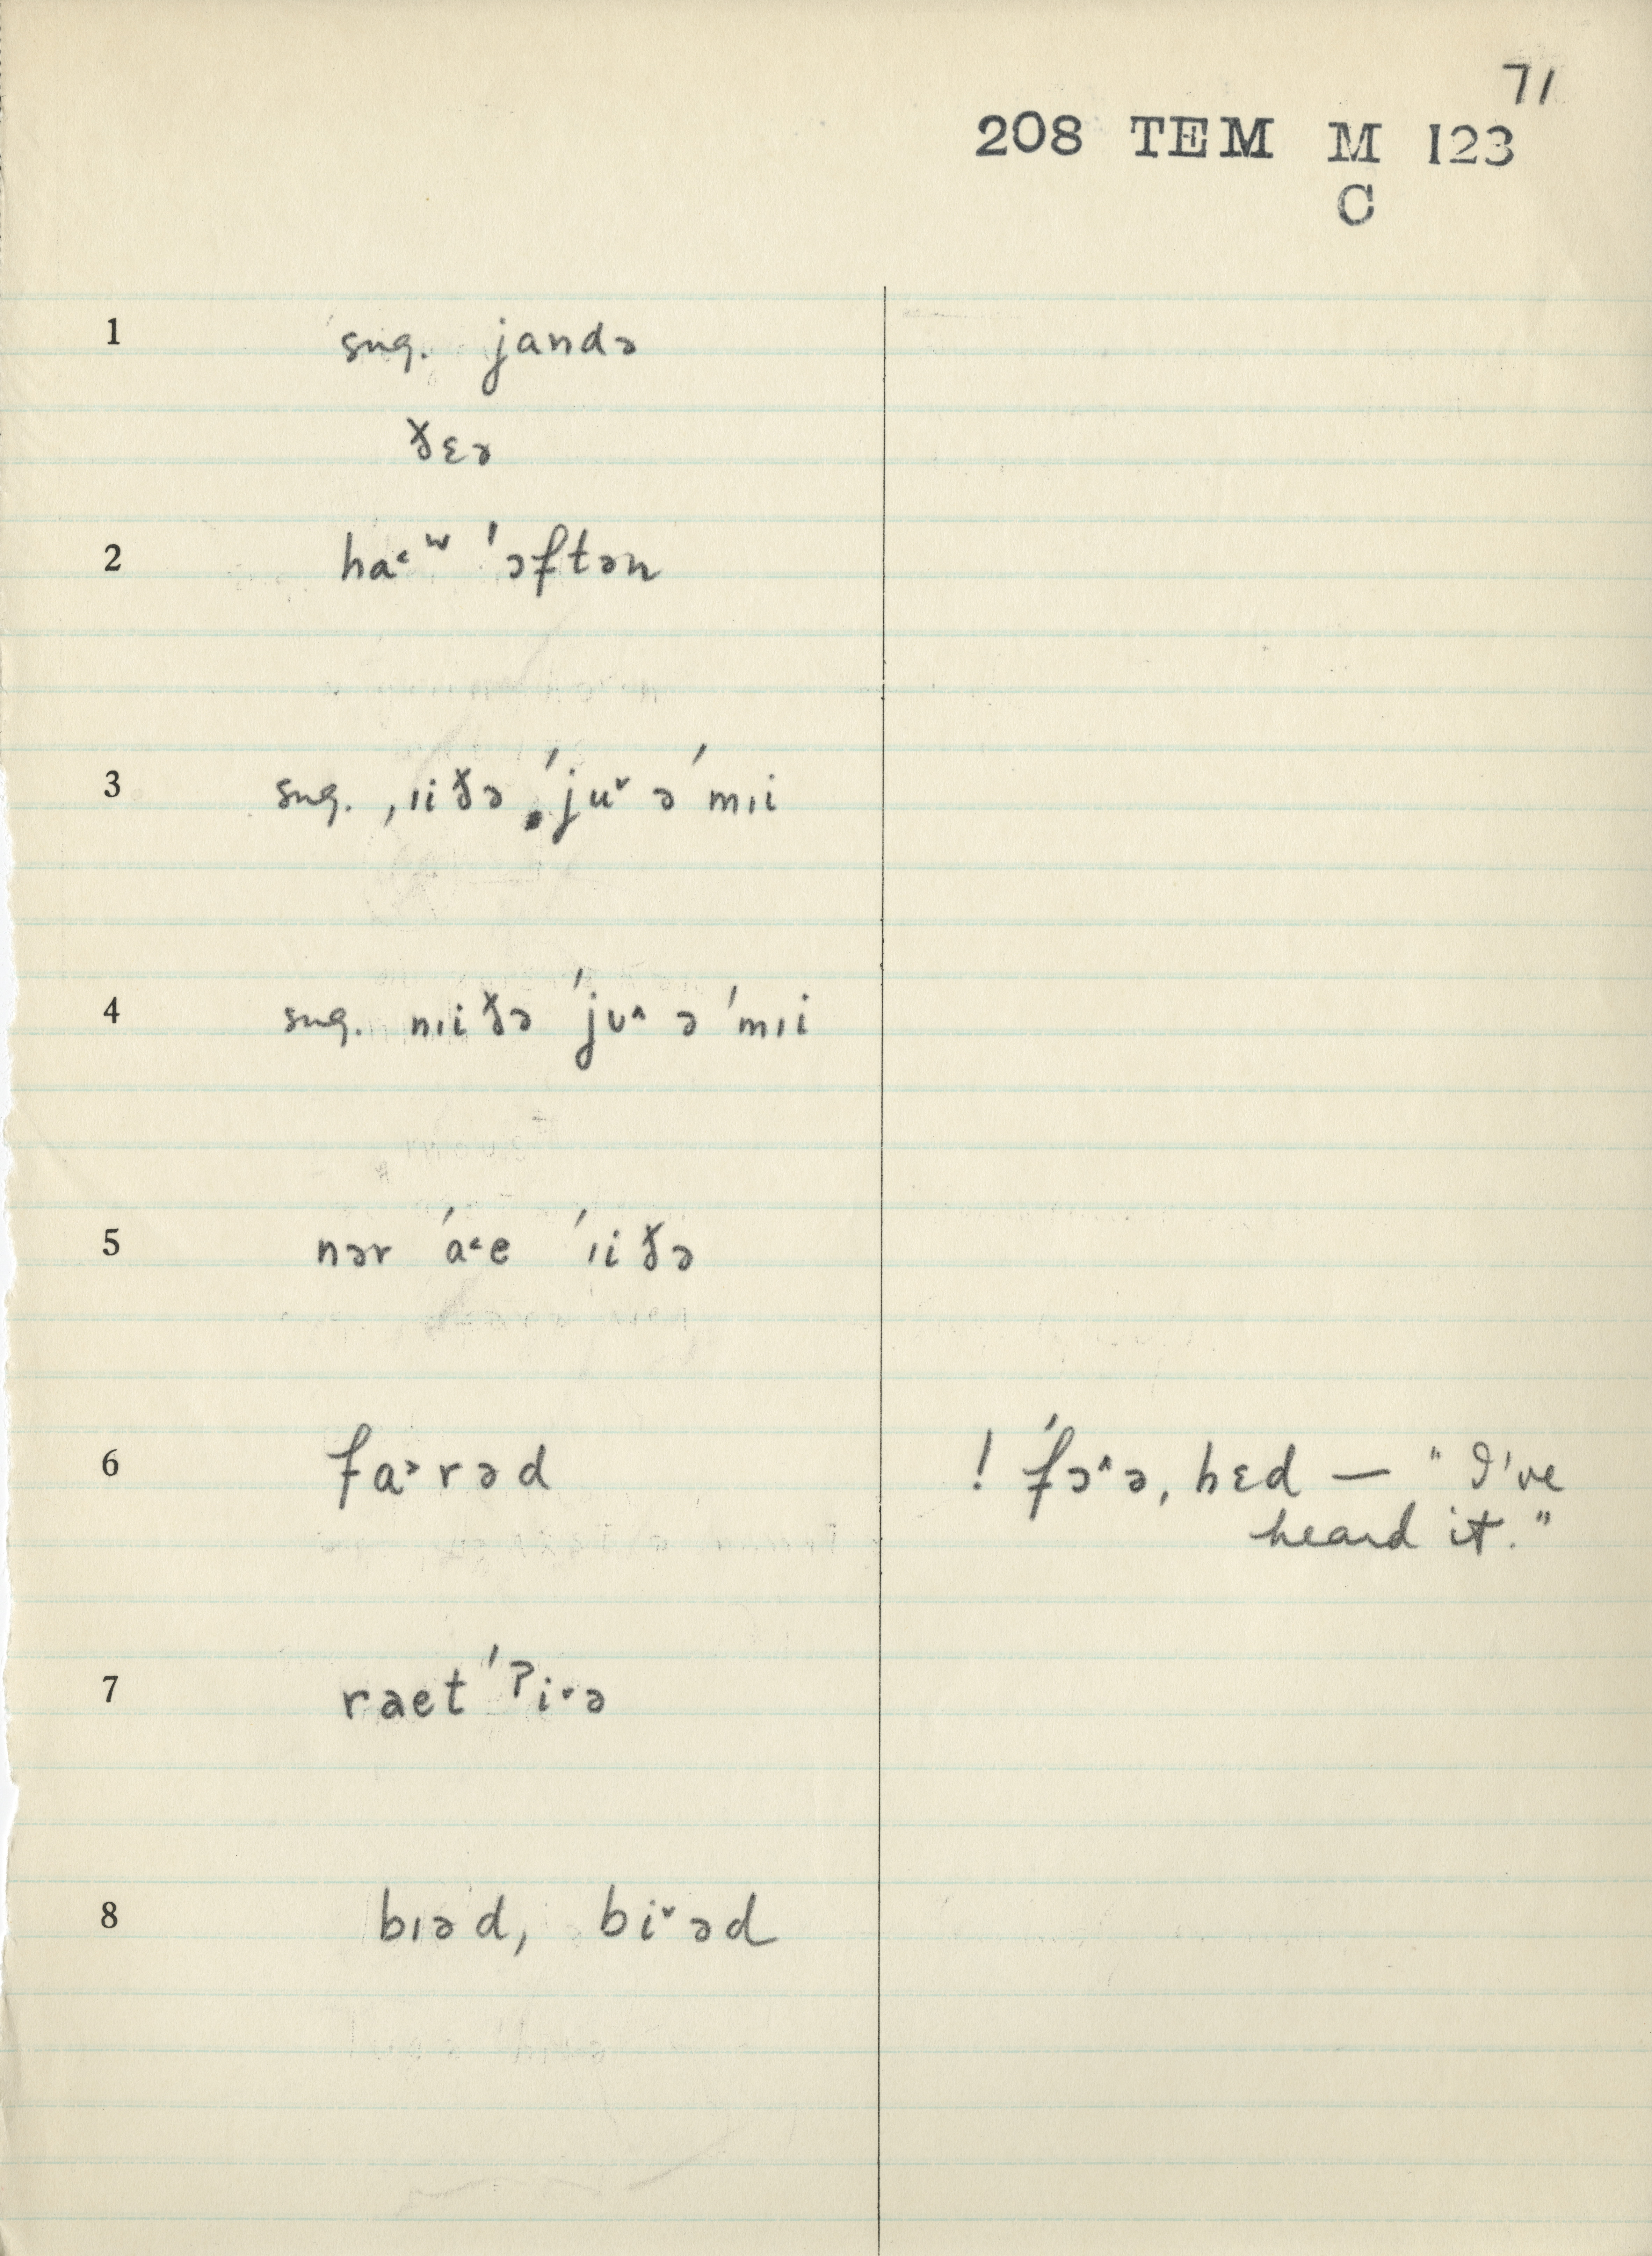 71
208 TEM M 123
C
1 sug. jandə
ðɛə
2 ha˂ʷ ˈɔftən
3 sug. ˌɪiðə ˈju˅ ə ˈmɪi
4 sug. nɪiðə ˈjʊ˄ ə ˈmɪi
5 nər ˈa˂e ˈɪiðə
6 fa˃rəd ! ˈfɔ˄ə, hɛd — "I've
heard it."
7 raet ˈʔi˅ə
8 bɪəd, bi˅əd